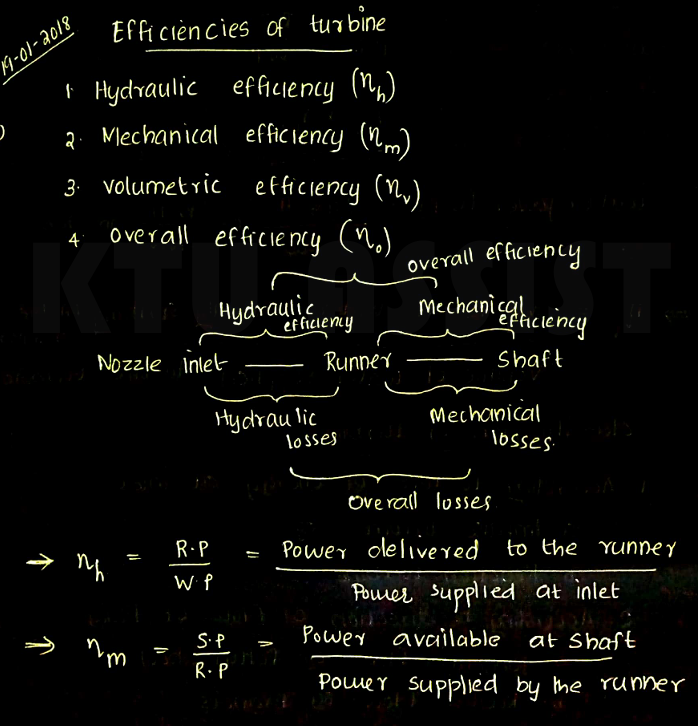 19-01-2018
Efficiencies of turbine
1. Hydraulic efficiency (ηh)
2. Mechanical efficiency (ηm)
3. volumetric efficiency (ηv)
4. overall efficiency (ηo)
KTU ASSIST
overall efficiency
Hydraulic efficiency
Mechanical efficiency
Nozzle inlet — Runner — Shaft
Hydraulic losses
Mechanical losses.
Overall losses
→ ηh = R.P / W.P = Power delivered to the runner / Power supplied at inlet
⇒ ηm = S.P / R.P = Power available at shaft / Power supplied by the runner